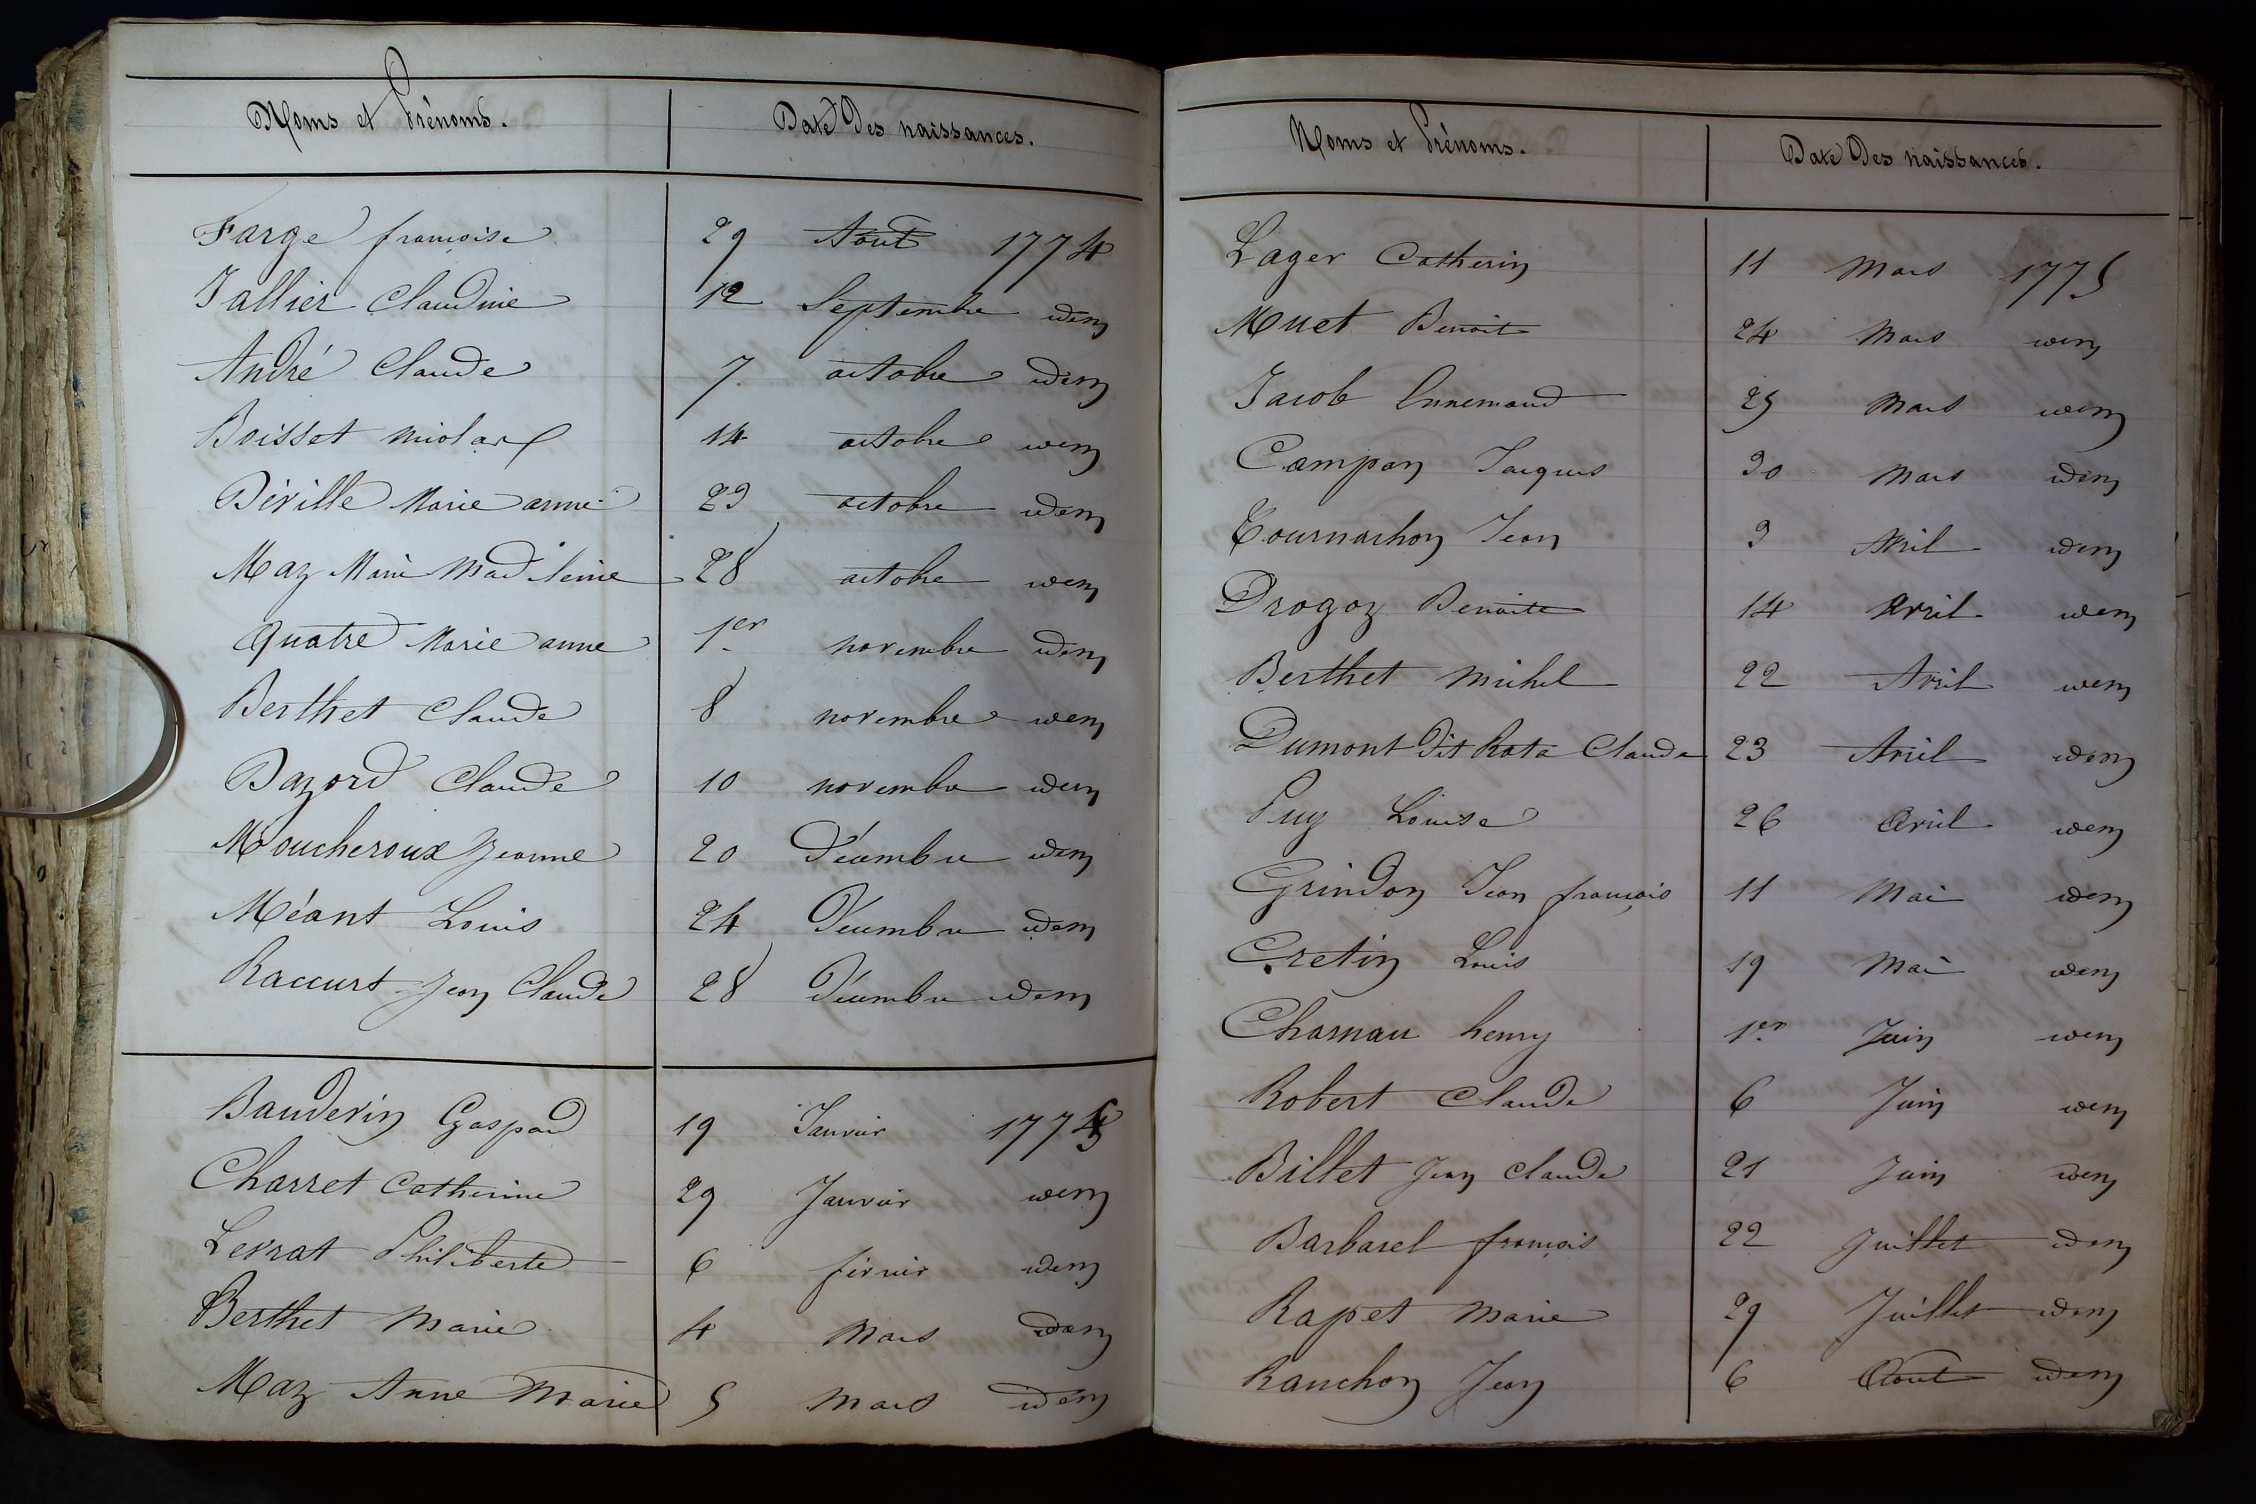 Noms et Prénoms. Date Des naissances.
Farge françoise 29 Aout 1774
Jallier Claudine 12 Septembre idem
André Claude 7 octobre idem
Boisset 14 octobre idem
Déville Marie anne 23 octobre idem
Maz Marie Madeleine 28 octobre idem
Quatre Marie anne 1er novembre idem
Berthet Claude 8 novembre idem
Bazord Claude 10 novembre idem
Moucheroux Jeanne 20 Décembre idem
Méant Louis 24 Décembre idem
Raccurt Jean Claude 28 Décembre idem
Bauderin Gaspard 19 Janvier 1775
Charret Catherine 29 Janvier idem
Levrat Philiberte 6 février idem
Berthet Marie 4 Mars idem
Maz Anne Marie 5 Mars idem
Noms et Prénoms. Date Des naissances.
Lager Catherin 11 Mars 1775
Muet Benoit 24 Mars idem
Jacob Ennemond 25 Mars idem
Campan Jacques 30 Mars idem
Tournachon Jean 3 Avril idem
Drogoz Benoite 14 Avril idem
Berthet Michel 22 Avril idem
Dumont Dit Rata Claude 23 Avril idem
Puy Louise 26 Avril idem
Grindon Jean françois 11 Mai idem
Cretin Louis 19 Mai idem
Charnau henry 1er Juin idem
Robert Claude 6 Juin idem
Billet Jean Claude 21 Juin idem
Barbarel françois 22 Juillet idem
Rapet Marie 29 Juillet idem
Ranchon Jean 6 Aout idem